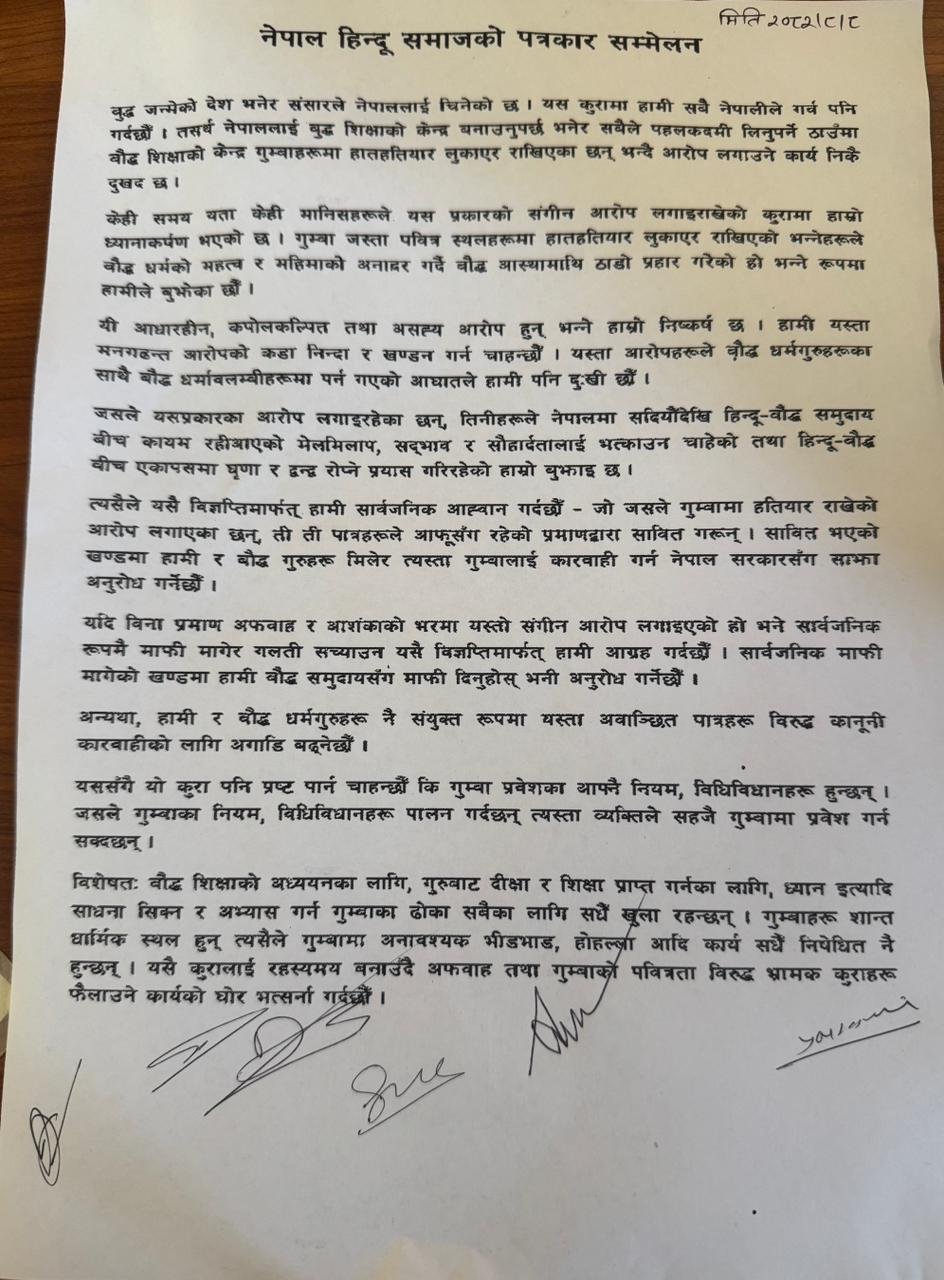 मिति २०८२/८/८
नेपाल हिन्दू समाजको पत्रकार सम्मेलन
बुद्ध जन्मेको देश भनेर संसारले नेपाललाई चिनेको छ । यस कुरामा हामी सबै नेपालीले गर्व पनि
गर्दछौँ । तसर्थ नेपाललाई बुद्ध शिक्षाको केन्द्र बनाउनुपर्छ भनेर सबैले पहलकदमी लिनुपर्ने ठाउँमा
बौद्ध शिक्षाको केन्द्र गुम्बाहरूमा हातहतियार लुकाएर राखिएका छन् भन्दै आरोप लगाउने कार्य निकै
दुखद छ ।
केही समय यता केही मानिसहरूले यस प्रकारको संगीन आरोप लगाइराखेको कुरामा हाम्रो
ध्यानाकर्षण भएको छ । गुम्बा जस्ता पवित्र स्थलहरूमा हातहतियार लुकाएर राखिएको भन्नेहरूले
बौद्ध धर्मको महत्व र महिमाको अनादर गर्दै बौद्ध आस्थामाथि ठाडो प्रहार गरेको हो भन्ने रूपमा
हामीले बुझेका छौँ ।
यी आधारहीन, कपोलकल्पित तथा असह्य आरोप हुन् भन्ने हाम्रो निष्कर्ष छ । हामी यस्ता
मनगढन्त आरोपको कडा निन्दा र खण्डन गर्न चाहन्छौँ । यस्ता आरोपहरूले बौद्ध धर्मगुरुहरूका
साथै बौद्ध धर्मावलम्बीहरूमा पर्न गएको आघातले हामी पनि दुःखी छौँ ।
जसले यसप्रकारका आरोप लगाइरहेका छन्, तिनीहरूले नेपालमा सदियौँदेखि हिन्दू-बौद्ध समुदाय
बीच कायम रहीआएको मेलमिलाप, सद्भाव र सौहार्दतालाई भत्काउन चाहेको तथा हिन्दू-बौद्ध
बीच एकापसमा घृणा र द्वन्द्व रोप्ने प्रयास गरिरहेको हाम्रो बुझाइ छ ।
त्यसैले यसै विज्ञप्तिमार्फत् हामी सार्वजनिक आह्वान गर्दछौँ - जो जसले गुम्बामा हतियार राखेको
आरोप लगाएका छन्, ती ती पात्रहरूले आफूसँग रहेको प्रमाणद्वारा सावित गरून् । सावित भएको
खण्डमा हामी र बौद्ध गुरुहरू मिलेर त्यस्ता गुम्बालाई कारवाही गर्न नेपाल सरकारसंग साझा
अनुरोध गर्नेछौँ ।
यदि विना प्रमाण अफवाह र आशंकाको भरमा यस्तो संगीन आरोप लगाइएको हो भने सार्वजनिक
रूपमै माफी मागेर गलती सच्याउन यसै विज्ञप्तिमार्फत् हामी आग्रह गर्दछौँ । सार्वजनिक माफी
मागेको खण्डमा हामी बौद्ध समुदायसँग माफी दिनुहोस् भनी अनुरोध गर्नेछौँ ।
अन्यथा, हामी र बौद्ध धर्मगुरुहरू नै संयुक्त रूपमा यस्ता अवाञ्छित पात्रहरू विरुद्ध कानूनी
कारवाहीको लागि अगाडि बढ्नेछौँ ।
यससँगै यो कुरा पनि प्रष्ट पार्न चाहन्छौँ कि गुम्बा प्रवेशका आफ्नै नियम, विधिविधानहरू हुन्छन् ।
जसले गुम्बाका नियम, विधिविधानहरू पालन गर्दछन् त्यस्ता व्यक्तिले सहजै गुम्बामा प्रवेश गर्न
सक्दछन् ।
विशेषतः बौद्ध शिक्षाको अध्ययनका लागि, गुरुबाट दीक्षा र शिक्षा प्राप्त गर्नका लागि, ध्यान इत्यादि
साधना सिक्न र अभ्यास गर्न गुम्बाका ढोका सबैका लागि सधैँ खुला रहन्छन् । गुम्बाहरू शान्त
धार्मिक स्थल हुन् त्यसैले गुम्बामा अनावश्यक भीडभाड, होहल्ला आदि कार्य सधैँ निषेधित नै
हुन्छन् । यसै कुरालाई रहस्यमय बनाउँदै अफवाह तथा गुम्बाको पवित्रता विरुद्ध भ्रामक कुराहरू
फैलाउने कार्यको घोर भर्त्सना गर्दछौँ ।